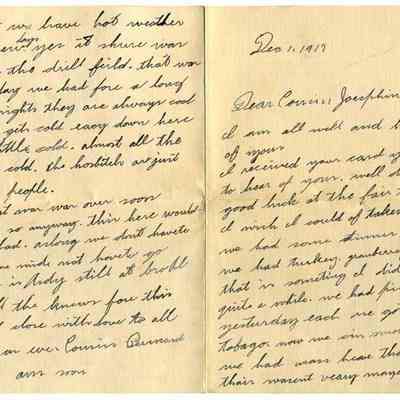 we have hot weather
days
yes it shure was
the drill feild. that was
day we had fore a long
nights they are always cool
gets cold easy down here
little cold. almost all the
cold. the hospitels are just
people.
war was over soon
so anyway. this here would
bad. as long we dont haveto
we mide not haveto go
is Andy still at
the knews fore this
close with love to all
Cousin Bernard
ans soon
Dec. 1. 1917
Dear Cousin Josephin
I am all well and
of yours
I received your card
to hear of your. well
good luck at the fair
I wish I could of taken
we had some dinner
we had turkey.
that is someting I did
quite a while. we had
yesterday each one go
tobago. now we in
we had mass hear tha
thair wasent veary many